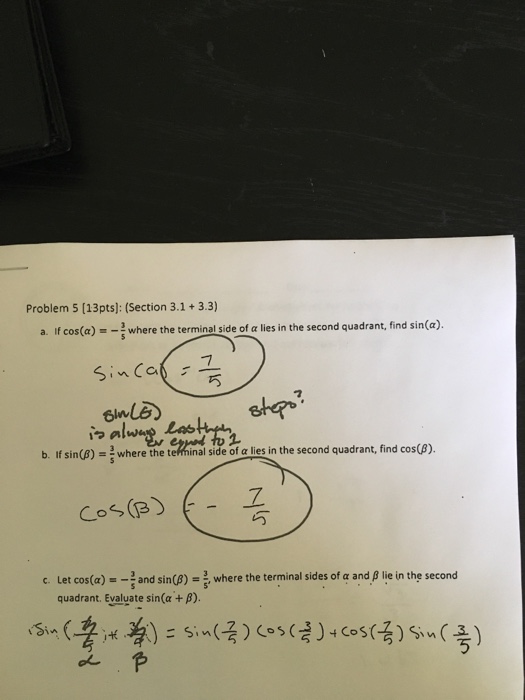 Problem 5 [13pts]: (Section 3.1 + 3.3)
a. If cos(α) = -3/5 where the terminal side of α lies in the second quadrant, find sin(α).
sin(α) = 7/5
sin(θ) steps?
is always less than
or equal to 1
b. If sin(β) = 3/5 where the terminal side of α lies in the second quadrant, find cos(β).
cos(β) = - 7/5
c. Let cos(α) = -3/5 and sin(β) = 3/5, where the terminal sides of α and β lie in the second
quadrant. Evaluate sin(α + β).
sin( + ) = sin(7/5) cos(3/5) + cos(7/5) sin(3/5)
α β